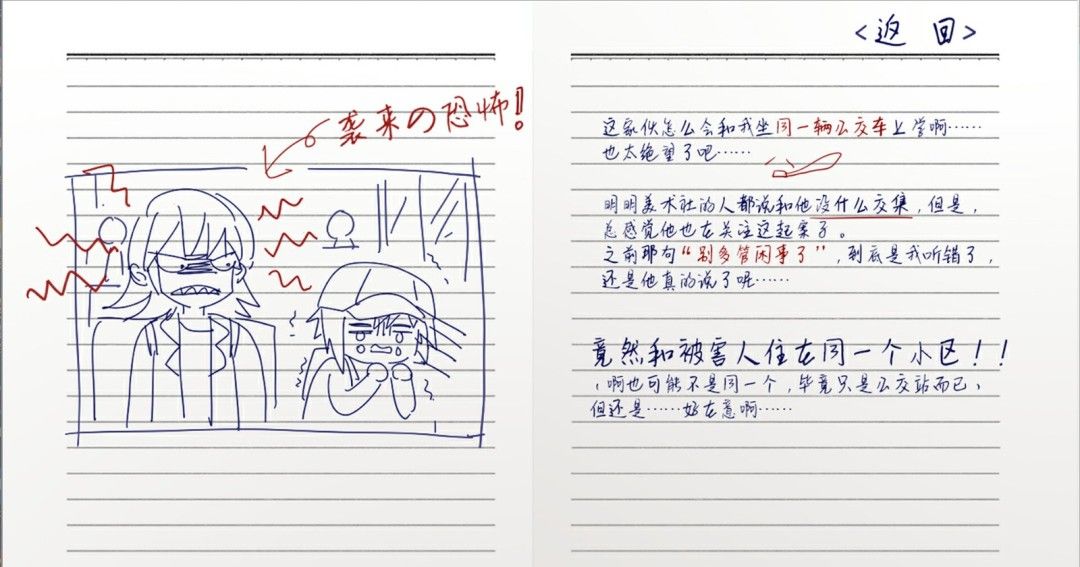 袭来の恐怖!
<返 回>
这家伙怎么会和我坐同一辆公交车上学啊……
也太绝望了吧……
明明美术社的人都说和他没什么交集,但是,
总感觉他也在关注这起案子。
之前那句“别多管闲事了”,到底是我听错了,
还是他真的说了呢……
竟然和被害人住在同一个小区!!
(啊也可能不是同一个,毕竟只是公交站而已)
但还是……好在意啊……